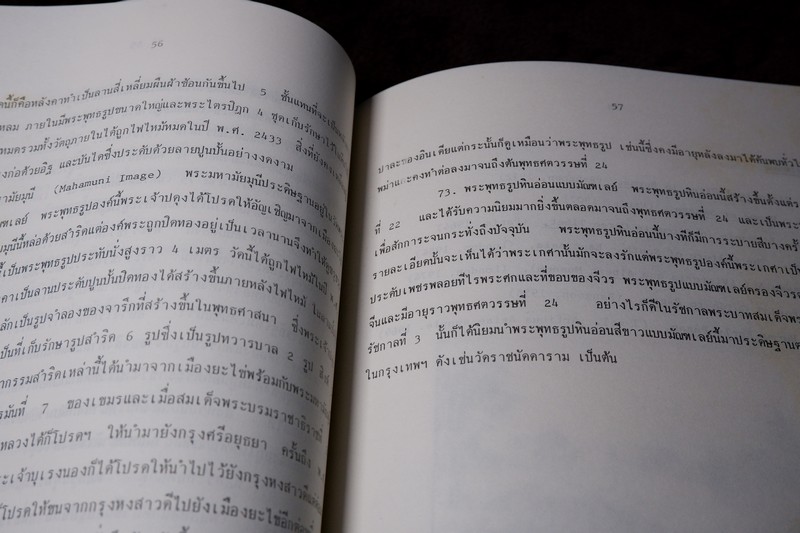 56
คนี้ก็คือหลังคาทำเป็นลานสี่เหลี่ยมผืนผ้าซ้อนกันขึ้นไป 5 ชั้นแทนที่จะเป็น
หลม ภายในมีพระพุทธรูปขนาดใหญ่และพระไตรปิฎก 4 ชุดเก็บรักษาไว้
หมดรวมทั้งวัตถุภายในได้ถูกไฟไหม้หมดในปี พ.ศ. 2433 สิ่งที่ยัง
งก่อด้วยอิฐ และบันไดซึ่งประดับด้วยลายปูนปั้นอย่างงดงาม
ามัยมุนี (Mahamuni Image) พระมหามัยมุนีประดิษฐานอยู่
ัณฑเลย์ พระพุทธรูปองค์นี้พระเจ้าปดุงได้โปรดให้อัญเชิญมาจากเมือง
มุนีนี้หล่อด้วยสำริดแต่องค์พระถูกปิดทองอยู่เป็นเวลานานจึงทำให้
ี้เป็นพระพุทธรูปประทับนั่งสูงราว 4 เมตร วัดนี้ได้ถูกไฟไหม้ในปี
คาเป็นลานประดับปูนปั้นปิดทองได้สร้างขึ้นภายหลังไฟไหม้
ลักเป็นรูปจำลองของจารึกที่สร้างขึ้นในพุทธศาสนา ซึ่งพระเจ้า
ป็นที่เก็บรักษารูปสำริด 6 รูปซึ่งเป็นรูปทวารบาล 2 รูป
ากรรมสำริดเหล่านี้ได้นำมาจากเมืองยะไข่พร้อมกับพระมหา
รมันที่ 7 ของเขมรและเมื่อสมเด็จพระบรมราชาธิราชที่
หลวงได้ก็โปรดฯ ให้นำมายังกรุงศรีอยุธยา ครั้นถึง
ะเจ้าบุเรงนองก็ได้โปรดให้นำไปไว้ยังกรุงหงสาวดี
โปรดให้ขนจากกรุงหงสาวดีไปยังเมืองยะไข่อีก
57
ปาละของอินเดียแต่กระนั้นก็ดูเหมือนว่าพระพุทธรูป เช่นนี้ซึ่งคงมีอายุหลังลงมาได้ค้นพบทั่วไป
พม่าและคงทำต่อลงมาจนถึงต้นพุทธศตวรรษที่ 24
73. พระพุทธรูปหินอ่อนแบบมัณฑเลย์ พระพุทธรูปหินอ่อนนี้สร้างขึ้นตั้งแต่
ที่ 22 และได้รับความนิยมมากยิ่งขึ้นตลอดมาจนถึงพุทธศตวรรษที่ 24 และเป็นพระ
เพื่อสักการะจนกระทั่งถึงปัจจุบัน พระพุทธรูปหินอ่อนนี้บางทีก็มีการระบายสีบางครั้
รายละเอียดนั้นจะเห็นได้ว่าพระเกศานั้นมักจะลงรักแต่พระพุทธรูปองค์นี้พระเกศาเป็
ประดับเพชรพลอยที่ไรพระศกและที่ขอบของจีวร พระพุทธรูปแบบมัณฑเลย์ครองจีวร
จีนและมีอายุราวพุทธศตวรรษที่ 24 อย่างไรก็ดีในรัชกาลพระบาทสมเด็จพร
รัชกาลที่ 3 นั้นก็ได้นิยมนำพระพุทธรูปหินอ่อนสีขาวแบบมัณฑเลย์นี้มาประดิษฐาน
ในกรุงเทพฯ ดังเช่นวัดราชนัดดาราม เป็นต้น